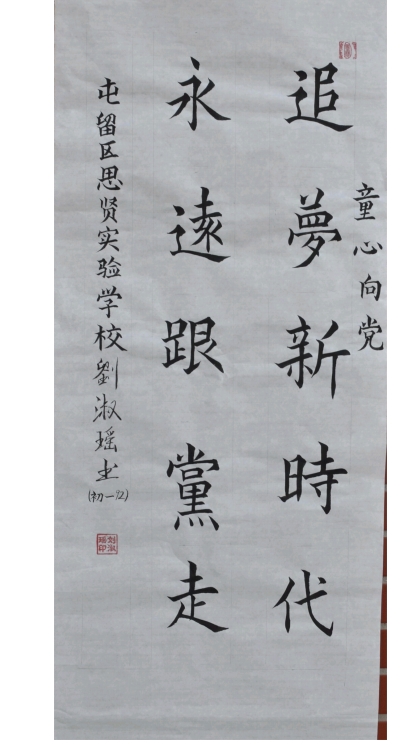 童心向党
追夢新時代
永遠跟黨走
屯留区思贤实验学校劉淑瑶书
(初一92)